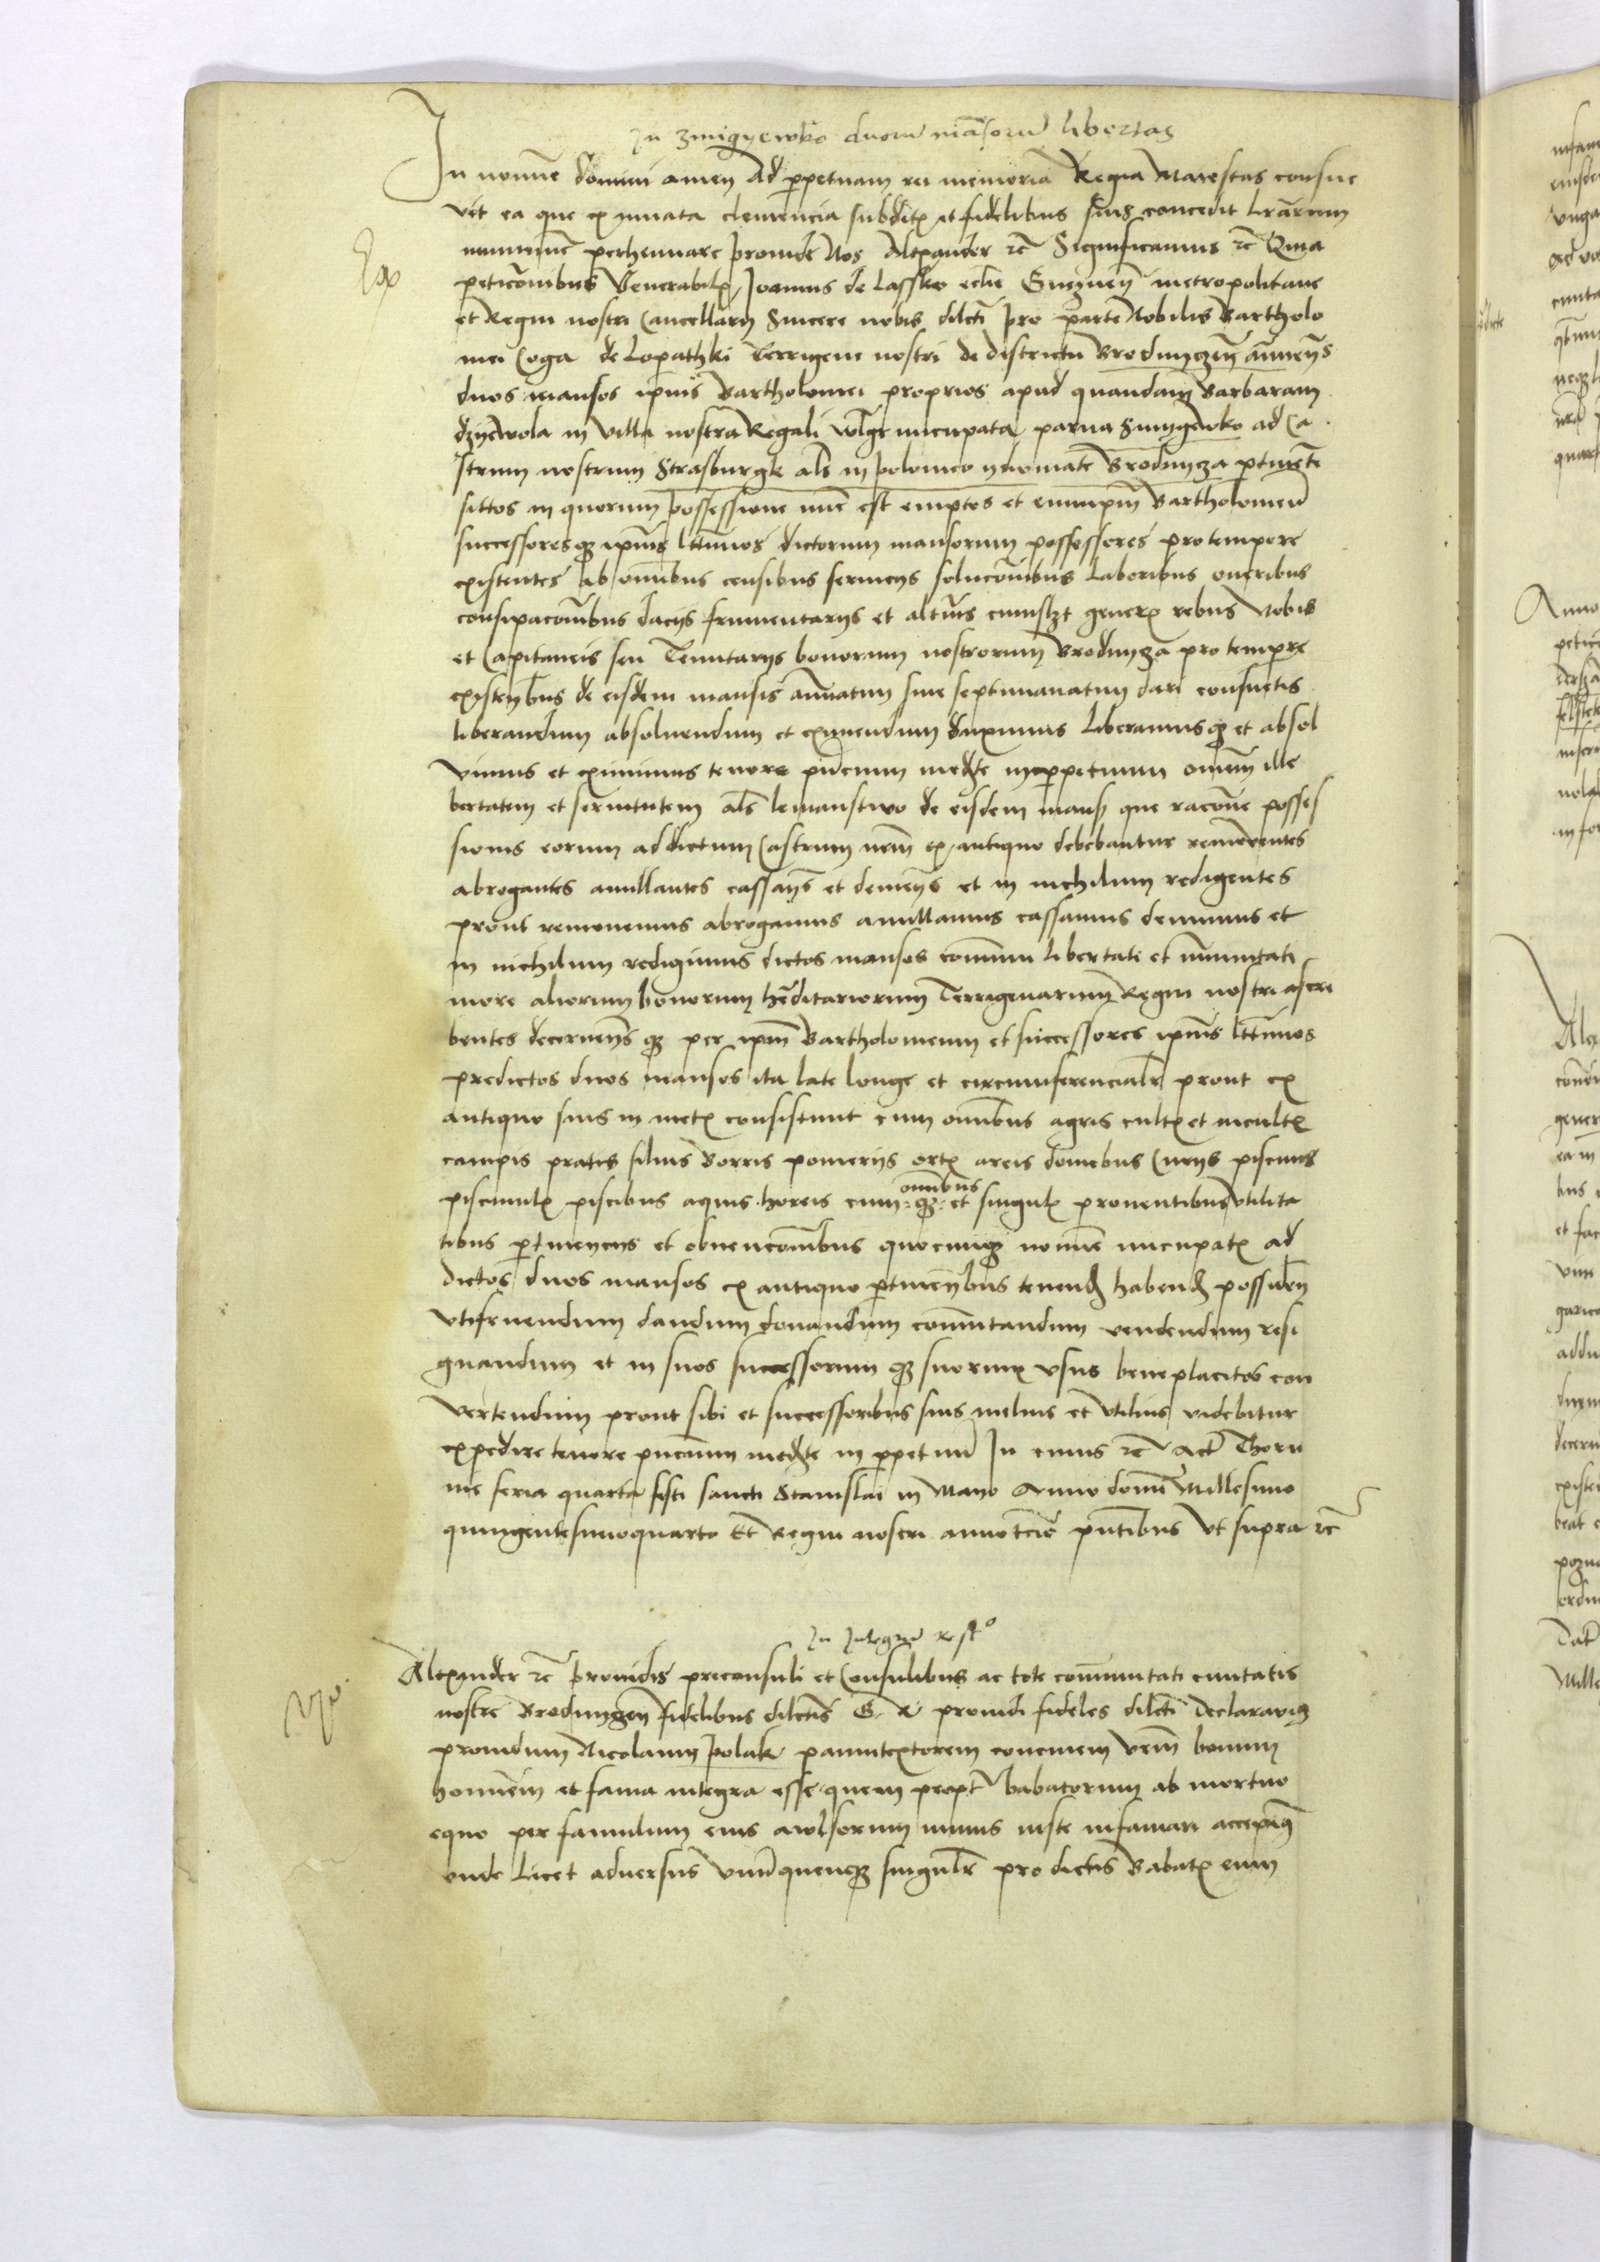 In Zmigyewko duorum mansorum libertas
In nomine domini amen Ad perpetuam rei memoria Regia Maiestas consue
vit ea que ex innata clemencia subditis et fidelibus suis concedit lrarum
munimine perhennare Proinde Nos Allexander etc Significamus etc Quia
Ex
peticionibus Venerabilis Joannis de Lassko eclie Gneznen metropolitane
et Regni nostri Cancellarii Sincere nobis dilcti pro parte Nobilis Bartholo
mei Coga de Lopathki Terrigene nostri de districtu Brodnyczen annuens
duos mansos ipius Bartholomei proprios apud quandam Barbaram
dzyewola in villa nostra Regali wlgr nucupata parua Smygewko ad Ca
strum nostrum Strasburgk als in polonico ydiomate Brodnycza ptinete
sittos in quorum possessione nunc est emptos et eundipm Bartholomeu
successoresque ipius lttimos dictorum mansorum possessores pro tempore
existentes ab omnibus censibus seruicys solucionibus laboribus oneribus
contribucionibus dacys frumentarys et alterius cuiuslibet generis rebus Nobis
et Capitaneis seu Tenutarys bonorum nostrorum Brodnycza pro tempore
existenbus de eisdem mansis annuatim siue septimanatim dari consuetis
liberandum absoluendum et eximendum duximus Liberamusque et absol
vimus et eximimus tenore pncium mediante inperpetuum omnem ille
bertatem et seruitutem als lemanstwo de eisdem mansis que racione posses
sionis eorum ad dictum Castrum nrm ex antiquo debebantur remouentes
abrogantes anullantes cassans et demens et in nichilum redigentes
prout remouemus abrogamus anullamus cassamus demimus et
in nichilum redigimus dictos mansos comuni libertati et inmunitati
more aliorum bonorum hereditariorum Terrigenarum Regni nostri ascri
bentes decernens que per ipm Bartholomeum et successores ipius lttimos
predictos duos mansos ita late longe et circumferencialr prout ex
antiquo suis in metis consistunt cum omnibus agris cultis et incultis
campis pratis siluis Borris pomerys ortis areis domibus Curys piscinis
piscinulis piscibus aquis horeis cum omnibus que et singulis prouentibus vtilita
tibus ptinencys et obuencionibus quocunque nomine nucupatis ad
dictos duos mansos ex antiquo ptinenbus tenend habend possiden
vtifruendum dandum donandum comutandum vendendum resi
gnandum et in suos successorum que suorum vsus beneplacitos con
vertendum prout sibi et successoribus suis melius et vtilius videbitur
expedire tenore pncium mediante in ppetuu In cuius etc Act Thoru
nie feria quarta festi sancti Stanislai in Mayo Anno domi Millesimo
quingentesimoquarto Et Regni nostri anno tcio pntibus vt supra etc
In Integru rest
Alexander etc Prouidis preconsuli et Consulibus ac tote comunitati ciuitatis
nostre Brodnyczen fidelibus dilctis G R prouidi fideles dilcti Declarauit
prouidum Nicolaum Polak pannitextorem conciuem vrm bonum
hominem et fama integra esse quem propt babatorum ab mortuo
equo per famulum eius awlsorum minus iuste infamari accepit
vnde licet aduersus vnuquenque singulr pro dictis Babatis eum